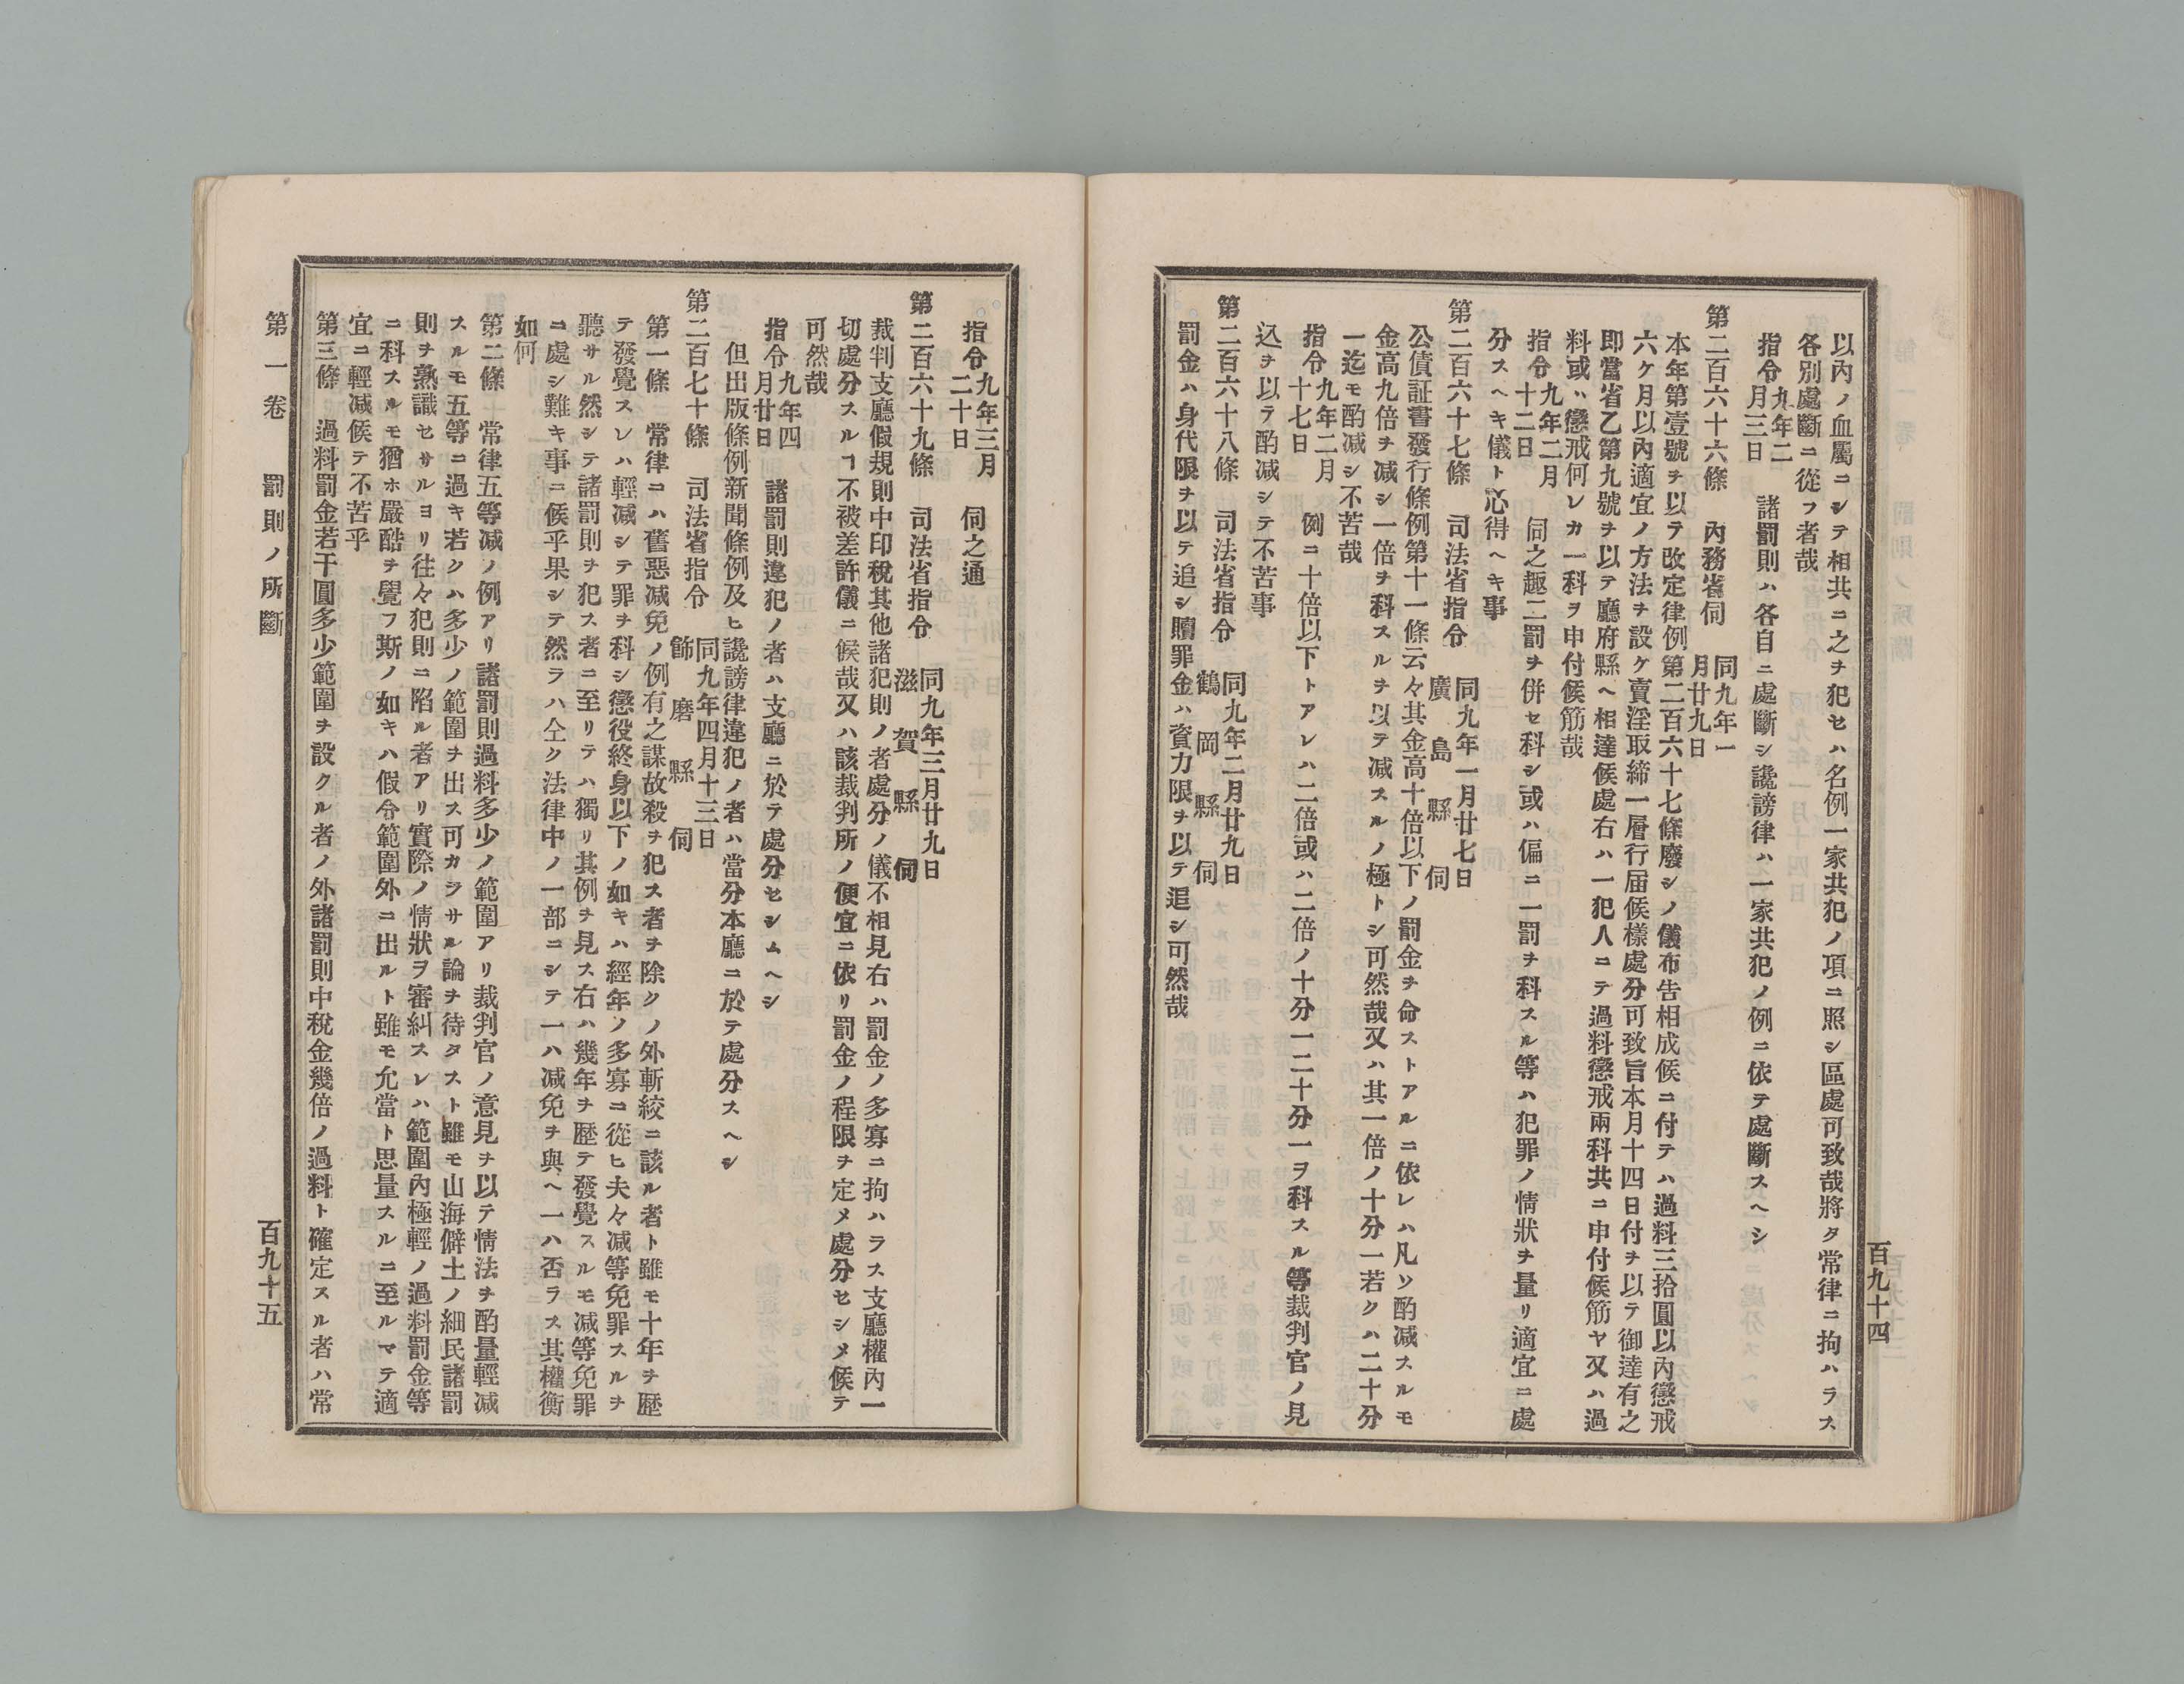 以內ノ血屬ニシテ相共ニ之ヲ犯セハ名例一家共犯ノ項ニ照シ區處可致哉將タ常律ニ拘ハラス
各別處斷ニ從フ者哉
指令九年二月三日 諸罰則ハ各自ニ處斷シ讒謗律ハ一家共犯ノ例ニ依テ處斷スヘシ
第二百六十六條 內務省伺 同九年一月廿九日
本年第壹號ヲ以テ改定律例第二百六十七條廢シノ儀布告相成候ニ付テハ過料三拾圓以內懲戒
六ケ月以內適宜ノ方法ヲ設ケ賣淫取締一層行届候樣處分可致旨本月十四日付ヲ以テ御達有之
即當省乙第九號ヲ以テ廳府縣ヘ相達候處右ハ一犯人ニテ過料懲戒兩科共ニ申付候筋ヤ又ハ過
料或ハ懲戒何レカ一科ヲ申付候筋哉
指令九年二月十二日 伺之趣二罰ヲ併セ科シ或ハ偏ニ一罰ヲ科スル等ハ犯罪ノ情狀ヲ量リ適宜ニ處
分スヘキ儀ト心得ヘキ事
第二百六十七條 司法省指令 同九年一月廿七日 廣島縣伺
公債証書發行條例第十一條云々其金高十倍以下ノ罰金ヲ命ストアルニ依レハ凡ソ酌減スルモ
金高九倍ヲ減シ一倍ヲ科スルヲ以テ減スルノ極トシ可然哉又ハ其一倍ノ十分一若クハ二十分
一迄モ酌減シ不苦哉
指令九年二月十七日 例ニ十倍以下トアレハ二倍或ハ二倍ノ十分一二十分一ヲ科スル等裁判官ノ見
込ヲ以テ酌減シテ不苦事
第二百六十八條 司法省指令 同九年二月廿九日 鶴岡縣伺
罰金ハ身代限ヲ以テ追シ贖罪金ハ資力限ヲ以テ追シ可然哉
百九十四
指令九年三月二十日 伺之通
第二百六十九條 司法省指令 同九年三月廿九日 滋賀縣伺
裁判支廳假規則中印稅其他諸犯則ノ者處分ノ儀不相見右ハ罰金ノ多寡ニ拘ハラス支廳權內一
切處分スルヿ不被差許儀ニ候哉又ハ該裁判所ノ便宜ニ依リ罰金ノ程限ヲ定メ處分セシメ候テ
可然哉
指令九年四月廿日 諸罰則違犯ノ者ハ支廳ニ於テ處分セシムヘシ
但出版條例新聞條例及ヒ讒謗律違犯ノ者ハ當分本廳ニ於テ處分スヘシ
第二百七十條 司法省指令 同九年四月十三日 飾磨縣伺
第一條 常律ニハ舊惡減免ノ例有之謀故殺ヲ犯ス者ヲ除クノ外斬絞ニ該ル者ト雖モ十年ヲ歷
テ發覺スレハ輕減シテ罪ヲ科シ懲役終身以下ノ如キハ經年ノ多寡ニ從ヒ夫々減等免罪スルヲ
聽サル然シテ諸罰則ヲ犯ス者ニ至リテハ獨リ其例ヲ見ス右ハ幾年ヲ歷テ發覺スルモ減等免罪
ニ處シ難キ事ニ候乎果シテ然ラハ仝ク法律中ノ一部ニシテ一ハ減免ヲ與ヘ一ハ否ラス其權衡
如何
第二條 常律五等減ノ例アリ諸罰則過料多少ノ範圍アリ裁判官ノ意見ヲ以テ情法ヲ酌量輕減
スルモ五等ニ過キ若クハ多少ノ範圍ヲ出ス可カラサル論ヲ待タスト雖モ山海僻土ノ細民諸罰
則ヲ熟識セサルヨリ往々犯則ニ陷ル者アリ實際ノ情狀ヲ審糾スレハ範圍內極輕ノ過料罰金等
ニ科スルモ猶ホ嚴酷ヲ覺フ斯ノ如キハ假令範圍外ニ出ルト雖モ允當ト思量スルニ至ルマテ適
宜ニ輕減候テ不苦乎
第三條 過料罰金若干圓多少範圍ヲ設クル者ノ外諸罰則中稅金幾倍ノ過料ト確定スル者ハ常
第一卷 罰則ノ所斷 百九十五